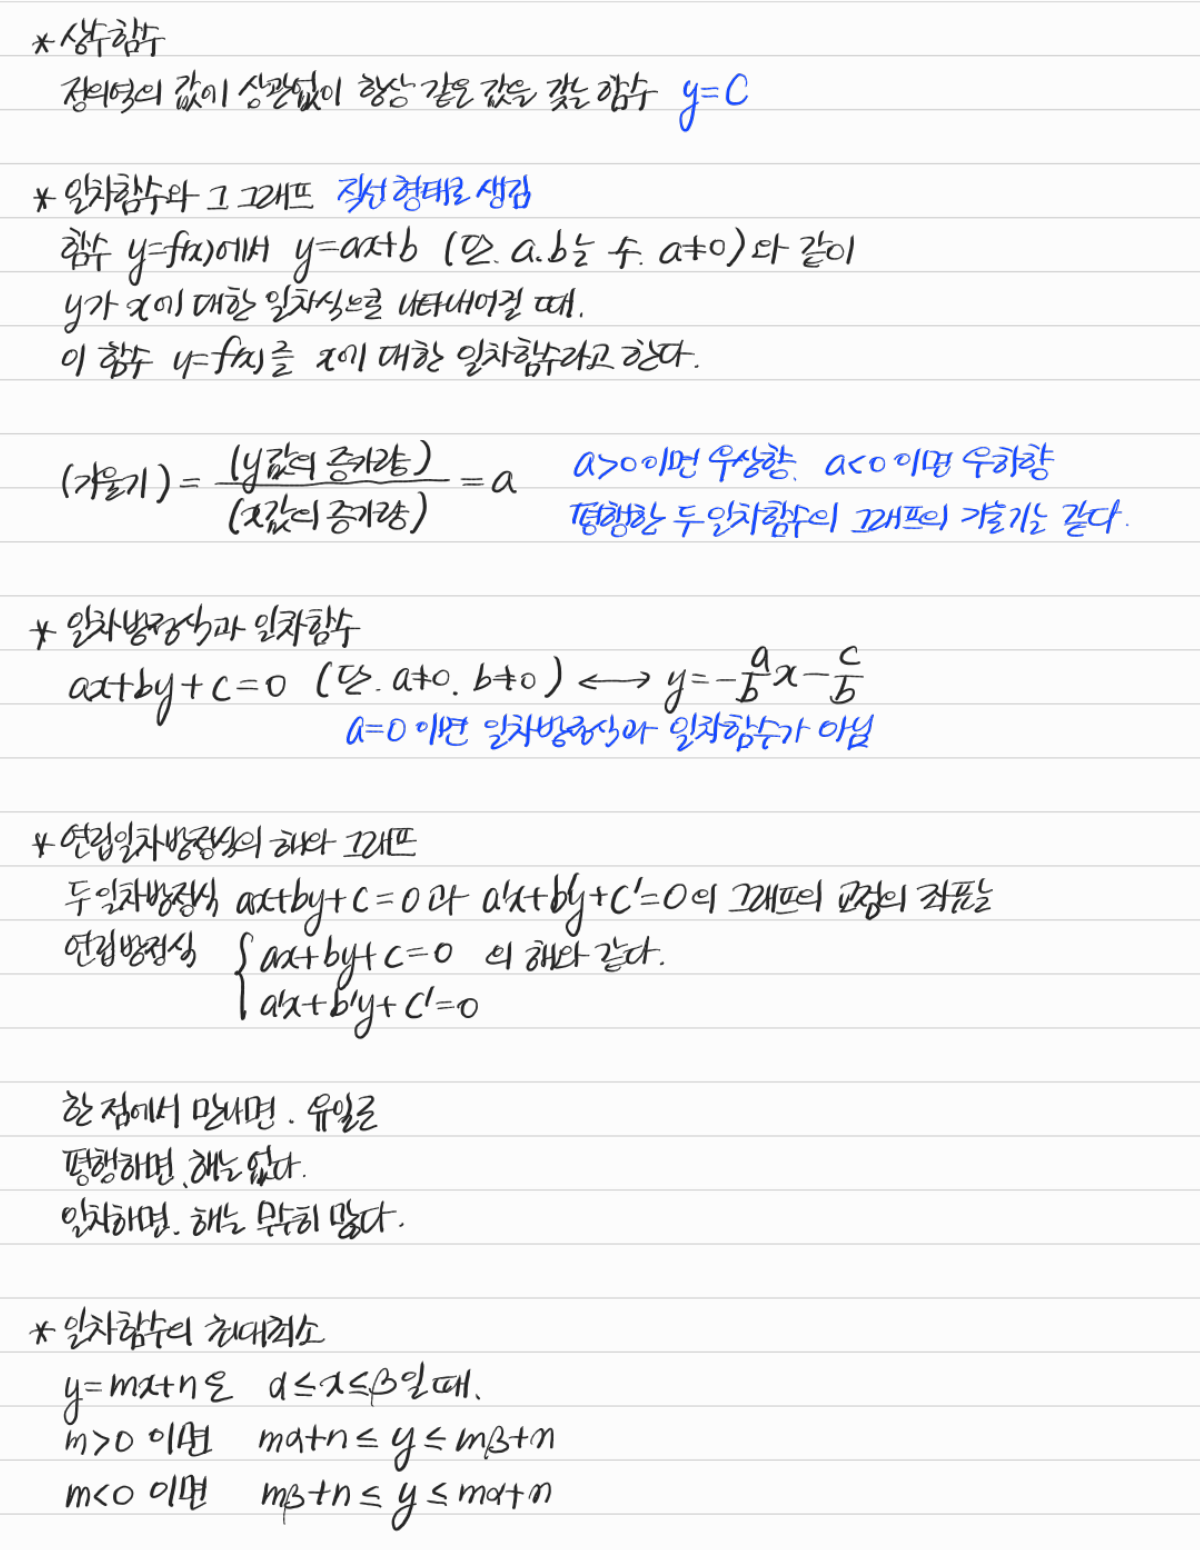 * 상수함수
정의역의 값에 상관없이 항상 같은 값을 갖는 함수 y=C
* 일차함수와 그 그래프 직선 형태로 생김
함수 y=f(x)에서 y=ax+b (단, a, b는 수, a≠0)와 같이
y가 x에 대한 일차식으로 나타내어질 때,
이 함수 y=f(x)를 x에 대한 일차함수라고 한다.
(기울기) = (y값의 증가량)/(x값의 증가량) = a a>0이면 우상향, a<0이면 우하향
평행한 두 일차함수의 그래프의 기울기는 같다.
* 일차방정식과 일차함수
ax+by+c=0 (단, a≠0, b≠0) ⟷ y=-a/b x - c/b
a=0이면 일차방정식과 일차함수가 아님
* 연립일차방정식의 해와 그래프
두 일차방정식 ax+by+c=0과 a'x+b'y+c'=0의 그래프의 교점의 좌표는
연립방정식 { ax+by+c=0 의 해와 같다.
a'x+b'y+c'=0
한 점에서 만나면, 유일근
평행하면, 해는 없다.
일치하면, 해는 무수히 많다.
* 일차함수의 최대최소
y=mx+n은 α≤x≤β일 때,
m>0 이면 mα+n ≤ y ≤ mβ+n
m<0 이면 mβ+n ≤ y ≤ mα+n